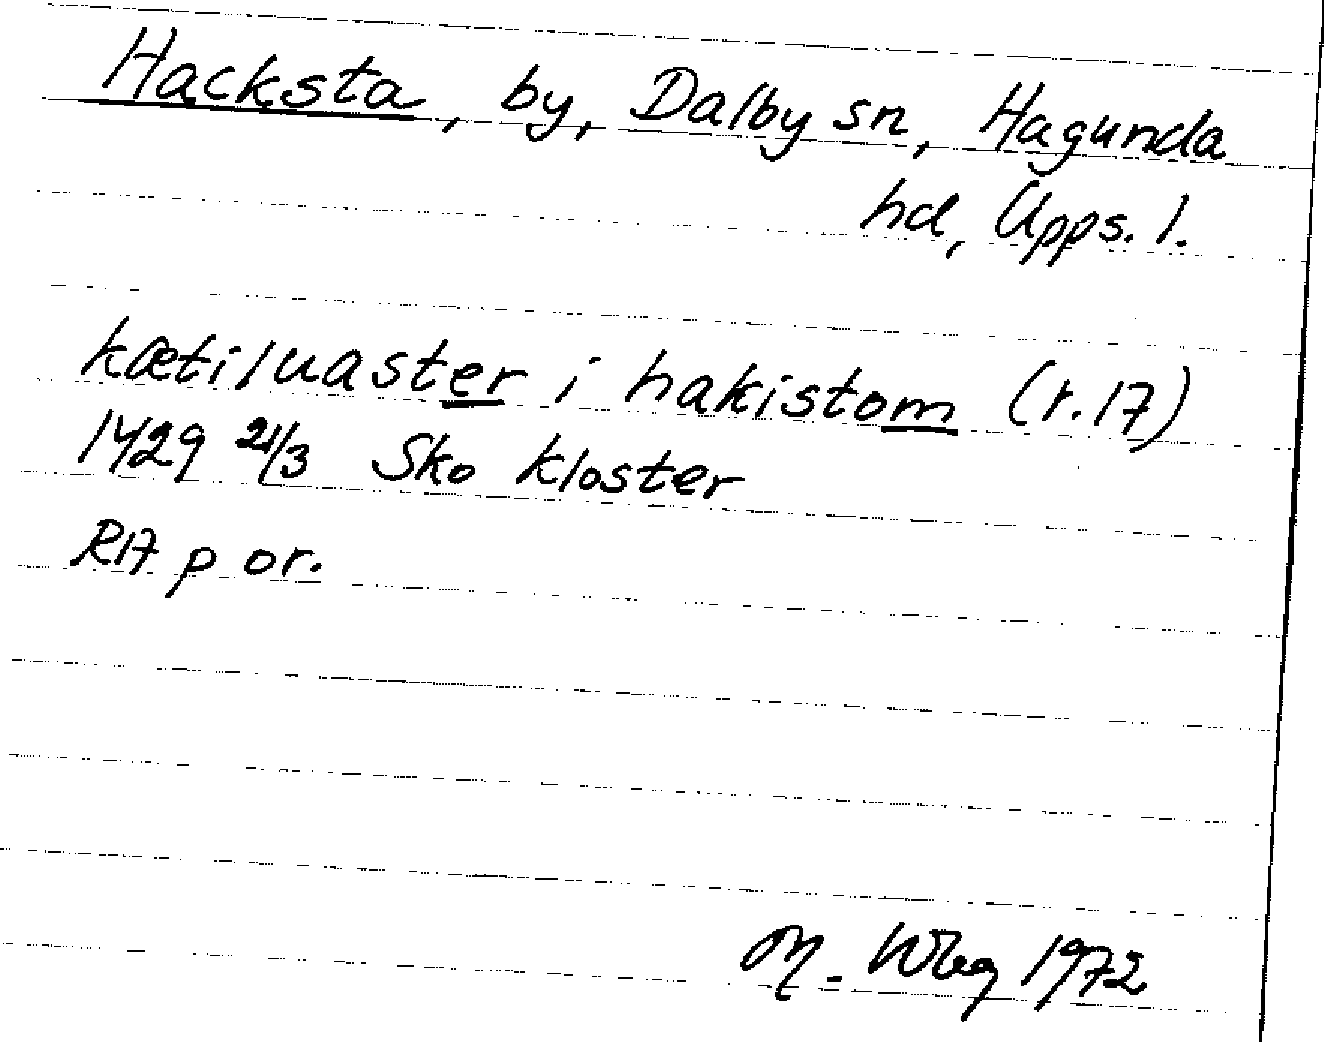 Hacksta, by, Dalby sn, Hagunda
hd, Upps. l.
kætiluaster i hakistom (r.17)
1429 21/3 Sko kloster
RA p or.
M. Wbg 1972